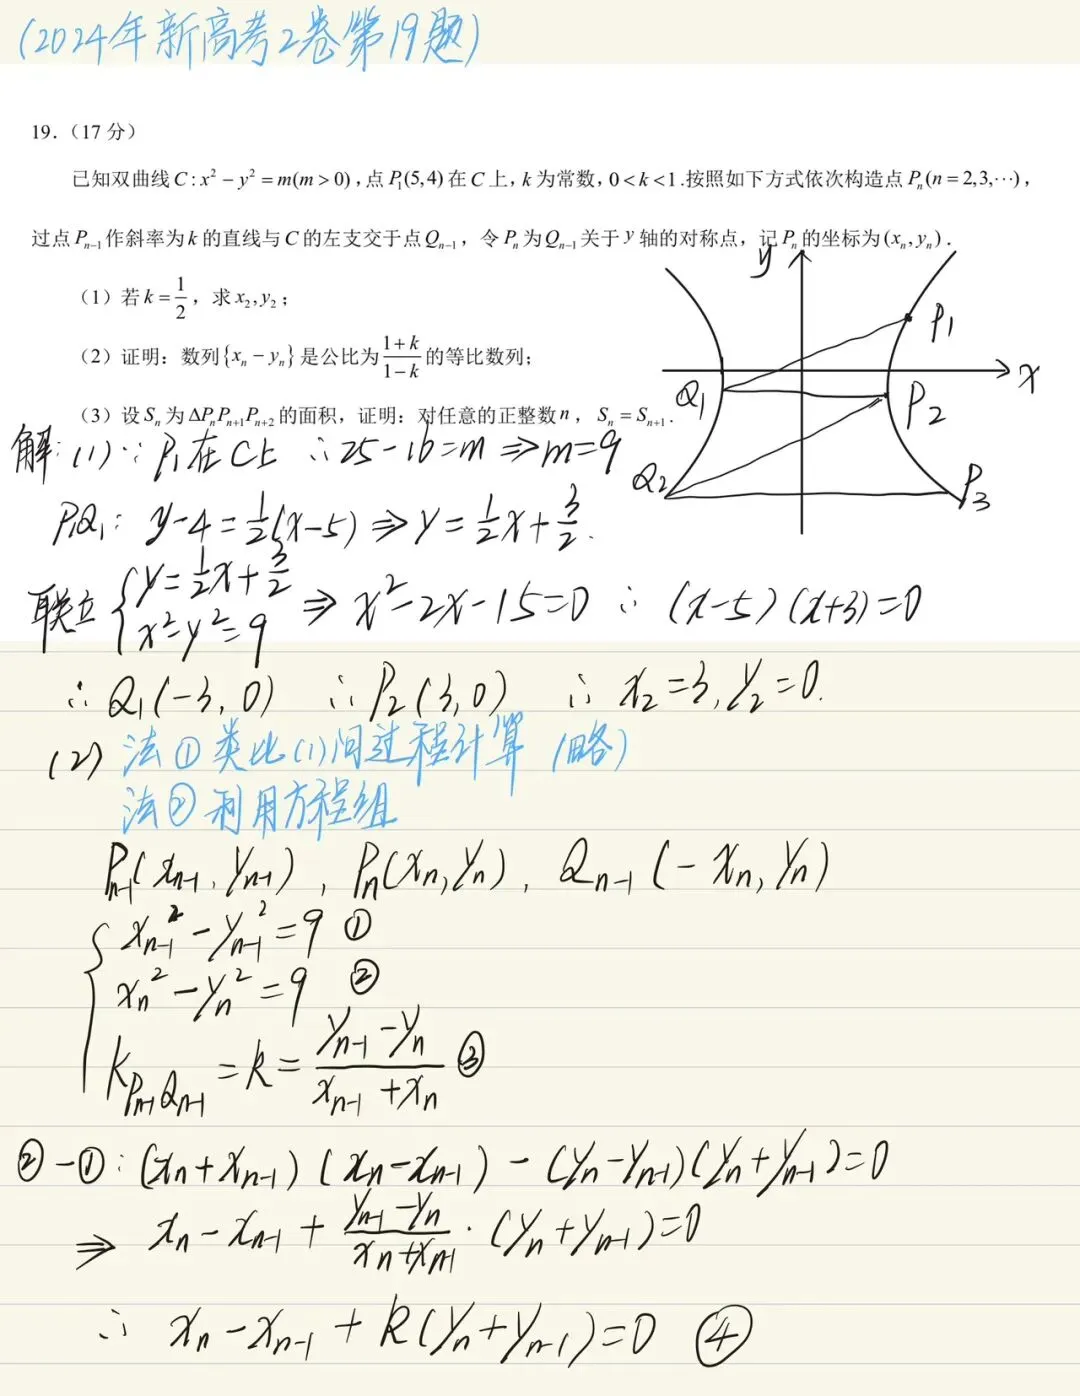 (2024年新高考2卷第19题)
19.（17 分）
已知双曲线 C : x² − y² = m(m > 0)，点 P₁(5,4) 在 C 上，k 为常数，0 < k < 1.按照如下方式依次构造点 Pₙ(n = 2,3,⋯)，
过点 Pₙ₋₁ 作斜率为 k 的直线与 C 的左支交于点 Qₙ₋₁，令 Pₙ 为 Qₙ₋₁ 关于 y 轴的对称点，记 Pₙ 的坐标为 (xₙ, yₙ).
（1）若 k = 1/2，求 x₂, y₂；
（2）证明：数列 {xₙ − yₙ} 是公比为 (1+k)/(1−k) 的等比数列；
（3）设 Sₙ 为 ΔPₙPₙ₊₁Pₙ₊₂ 的面积，证明：对任意的正整数 n，Sₙ = Sₙ₊₁.
y
x
P₁
Q₁
P₂
Q₂
P₃
解：(1) ∵ P₁在C上 ∴ 25−16=m ⇒ m=9
P₁Q₁: y−4=1/2(x−5) ⇒ y=1/2x+3/2.
联立 { y=1/2x+3/2
x²−y²=9 ⇒ x²−2x−15=0 ∴ (x−5)(x+3)=0
∴ Q₁(−3,0) ∴ P₂(3,0) ∴ x₂=3, y₂=0.
(2) 法① 类比(1)问过程计算 (略)
法② 利用方程组
Pₙ₋₁(xₙ₋₁, yₙ₋₁), Pₙ(xₙ, yₙ), Qₙ₋₁(−xₙ, yₙ)
{ xₙ₋₁²−yₙ₋₁²=9 ①
xₙ²−yₙ²=9 ②
k_{Pₙ₋₁Qₙ₋₁}=k=(yₙ₋₁−yₙ)/(xₙ₋₁+xₙ) ③
②−①: (xₙ+xₙ₋₁)(xₙ−xₙ₋₁)−(yₙ−yₙ₋₁)(yₙ+yₙ₋₁)=0
⇒ xₙ−xₙ₋₁+(yₙ₋₁−yₙ)/(xₙ+xₙ₋₁)·(yₙ+yₙ₋₁)=0
∴ xₙ−xₙ₋₁+k(yₙ+yₙ₋₁)=0 ④